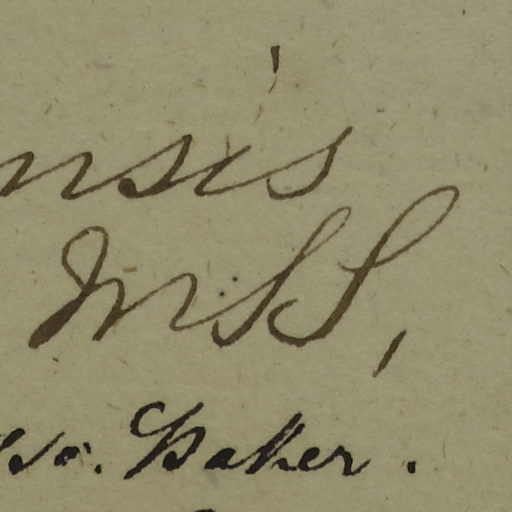 nsis
MSS,
Geo. Baker.